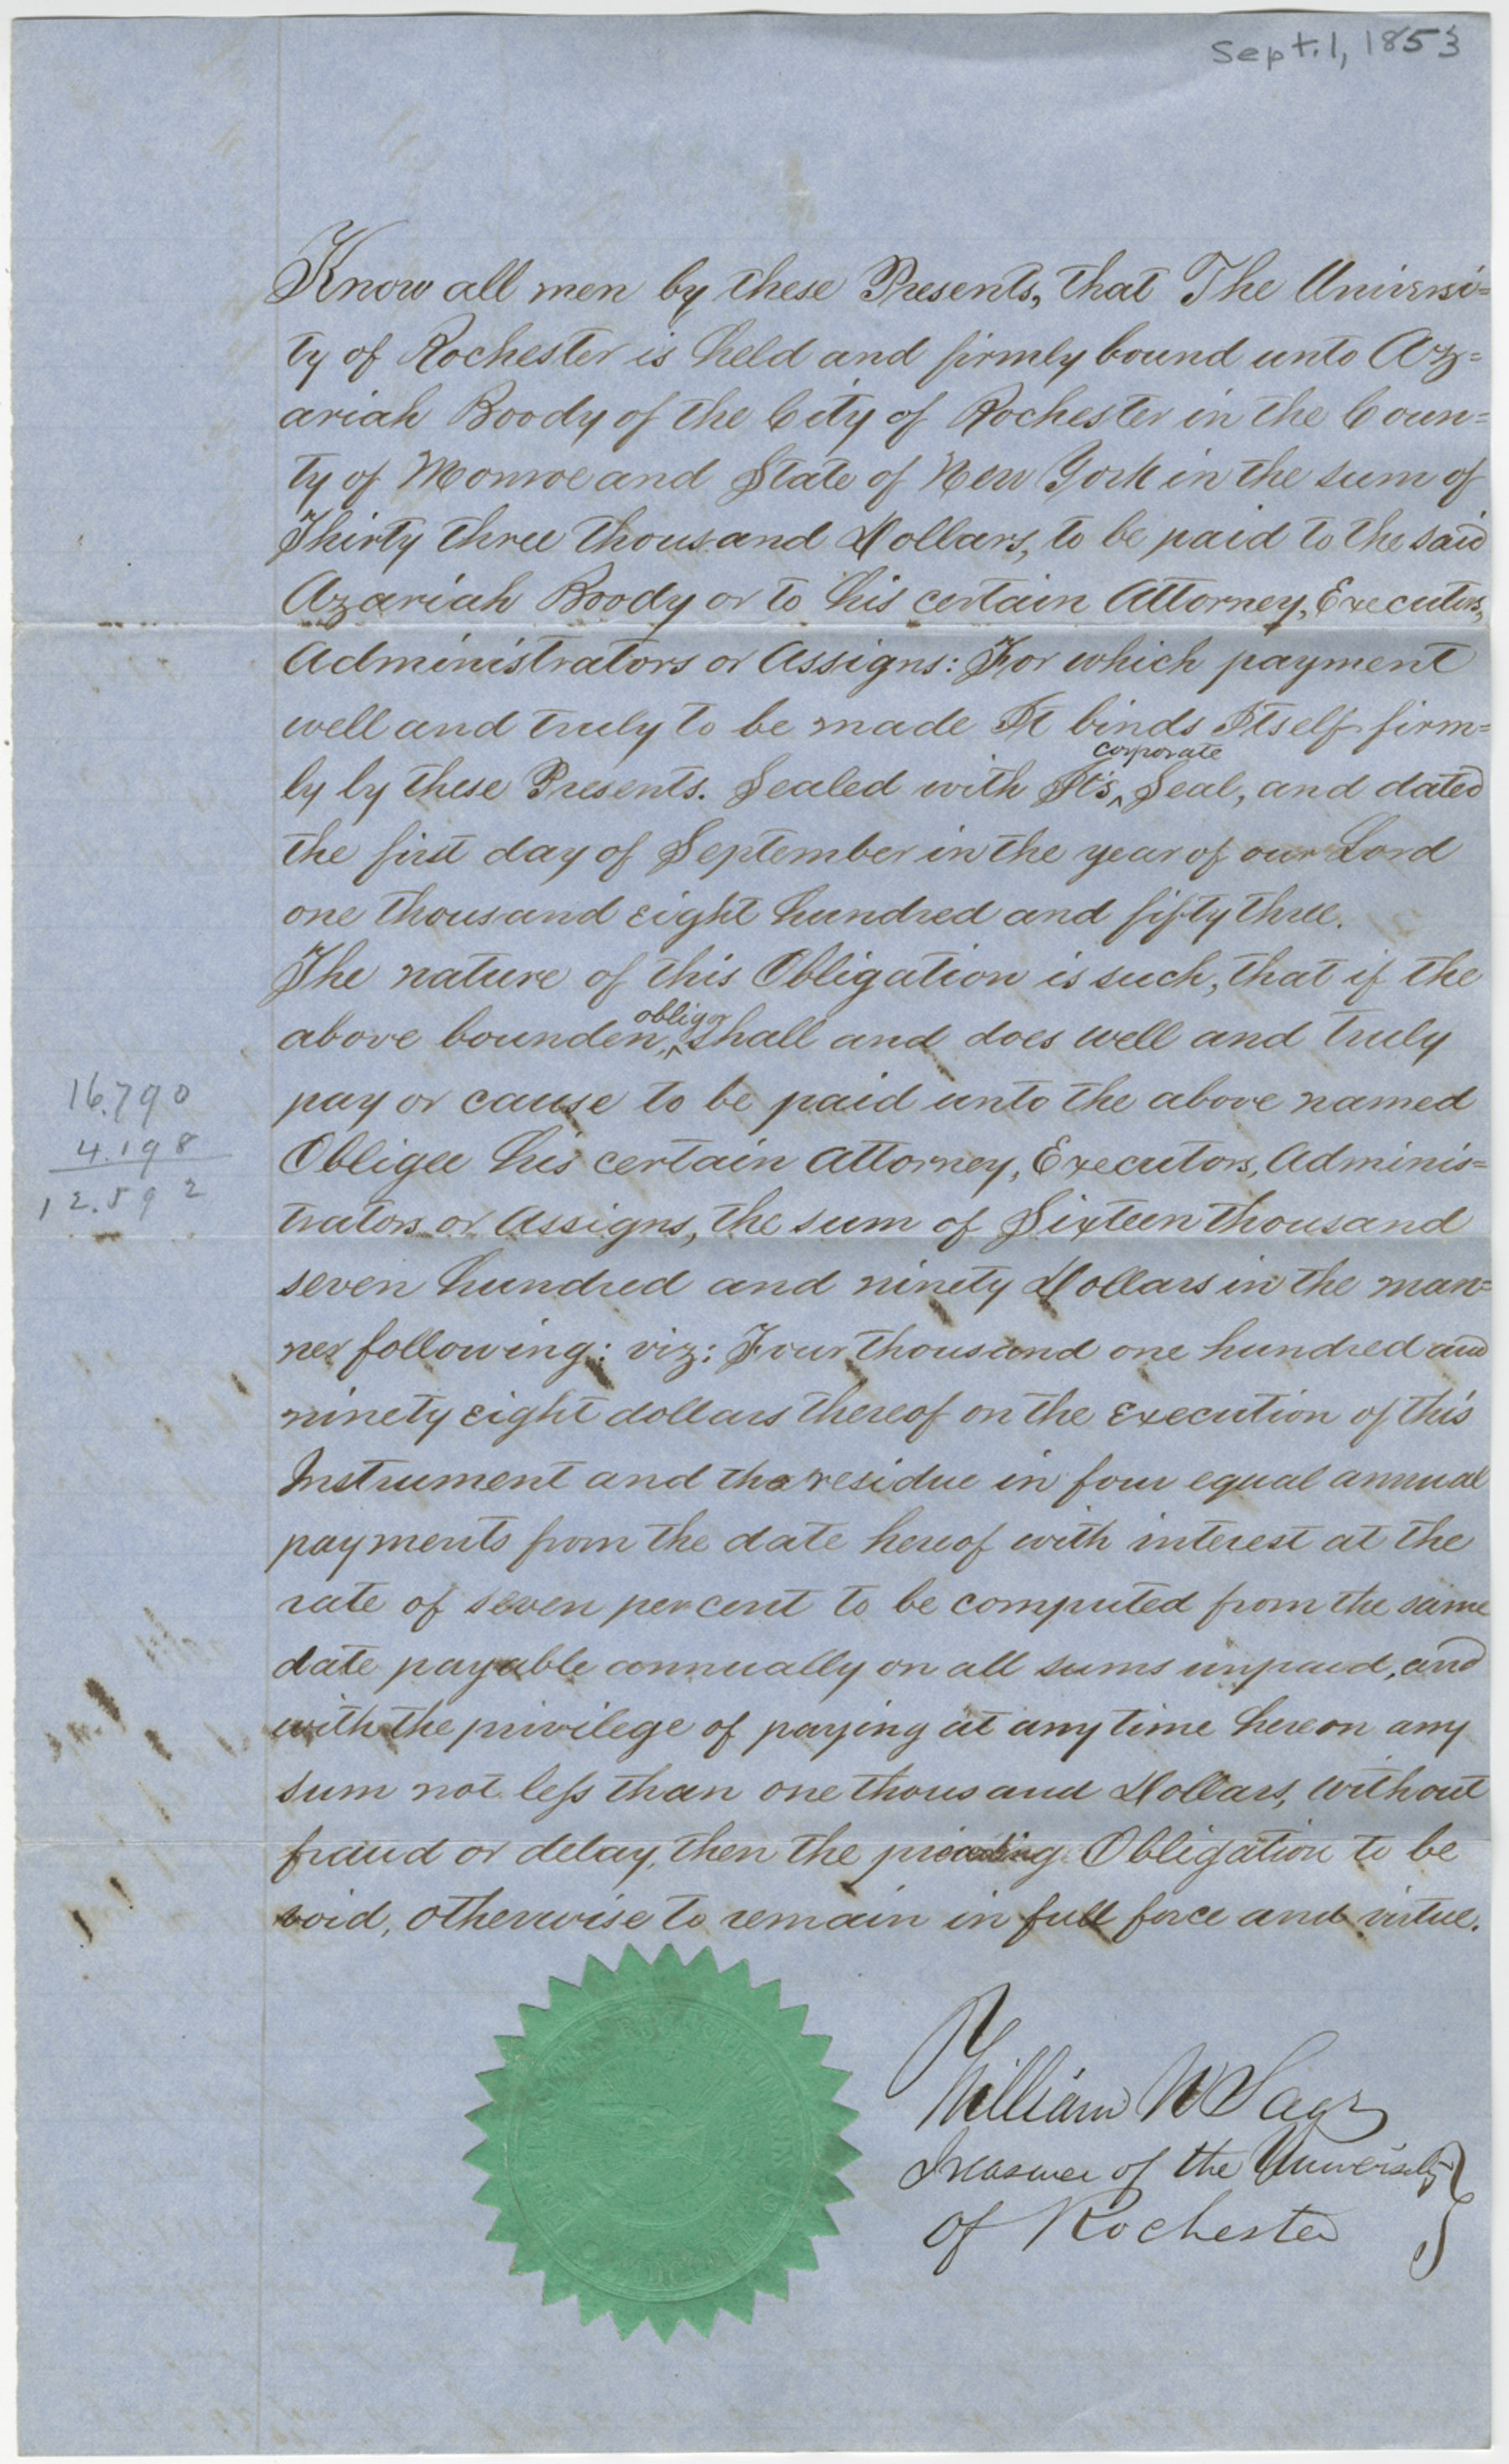 Sept. 1, 1853
Know all men by these Presents, that The Universi=
ty of Rochester is held and firmly bound unto Az=
ariah Boody of the City of Rochester in the Coun=
ty of Monroe and State of New York in the sum of
Thirty three thousand Dollars, to be paid to the said
Azariah Boody or to his certain Attorney, Executors,
Administrators or Assigns: For which payment
well and truly to be made It binds Itself firm=
corporate
ly by these Presents. Sealed with It's ‸ Seal, and dated
the first day of September in the year of our Lord
one thousand eight hundred and fifty three.
The nature of this Obligation is such, that if the
obligor
above bounden ‸ shall and does well and truly
pay or cause to be paid unto the above named
Obligee his certain Attorney, Executors, Adminis=
trators or Assigns, the sum of Sixteen thousand
seven hundred and ninety Dollars in the man=
ner following: viz: Four thousand one hundred and
ninety eight dollars thereof on the execution of this
Instrument and the residue in four equal annual
payments from the date hereof with interest at the
rate of seven per cent to be computed from the same
date payable annually on all sums unpaid, and
with the privilege of paying at any time hereon any
sum not less than one thousand Dollars, without
fraud or delay, then the preceding Obligation to be
void, otherwise to remain in full force and virtue.
16.790
4.198
12.592
William N Sage
Treasurer of the University
of Rochester